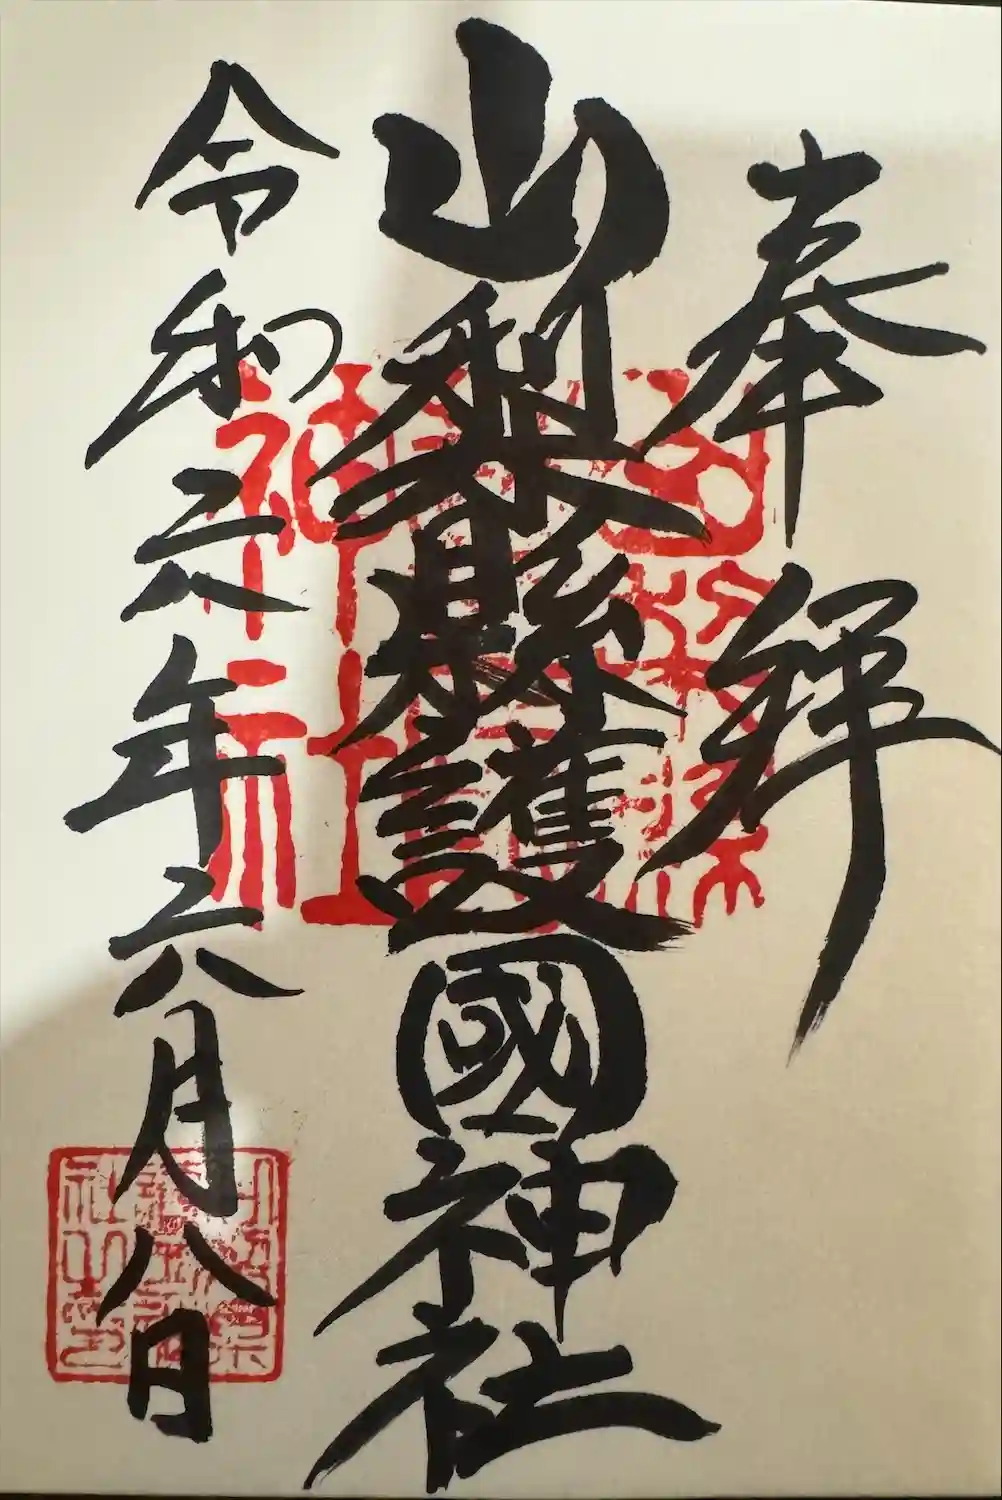 奉拝
山梨縣護國神社
令和六年六月八日